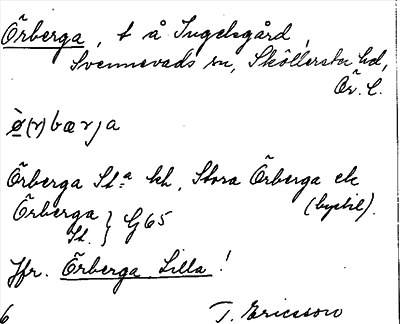 Örberga, t å Ingelsgård,
Svennevads sn, Sköllersta hd,
Ör. l.
ø̀(r)bærja
Örberga St:a kh, Stora Örberga ek
Örberga St. } G65 (bystil).
Jfr. Örberga, Lilla!
6 T. Ericsson